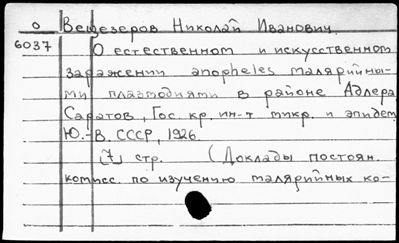 О Вещезеров Николай Иванович.
6037 О естественном и искусственном
заражении anopheles малярийны-
ми плазмодиями в районе Адлера
Саратов, Гос. кр. ин-т микр. и эпидем.
Ю.-В. СССР, 1926.
[7] стр. (Доклады постоян.
комисс. по изучению малярийных ко-